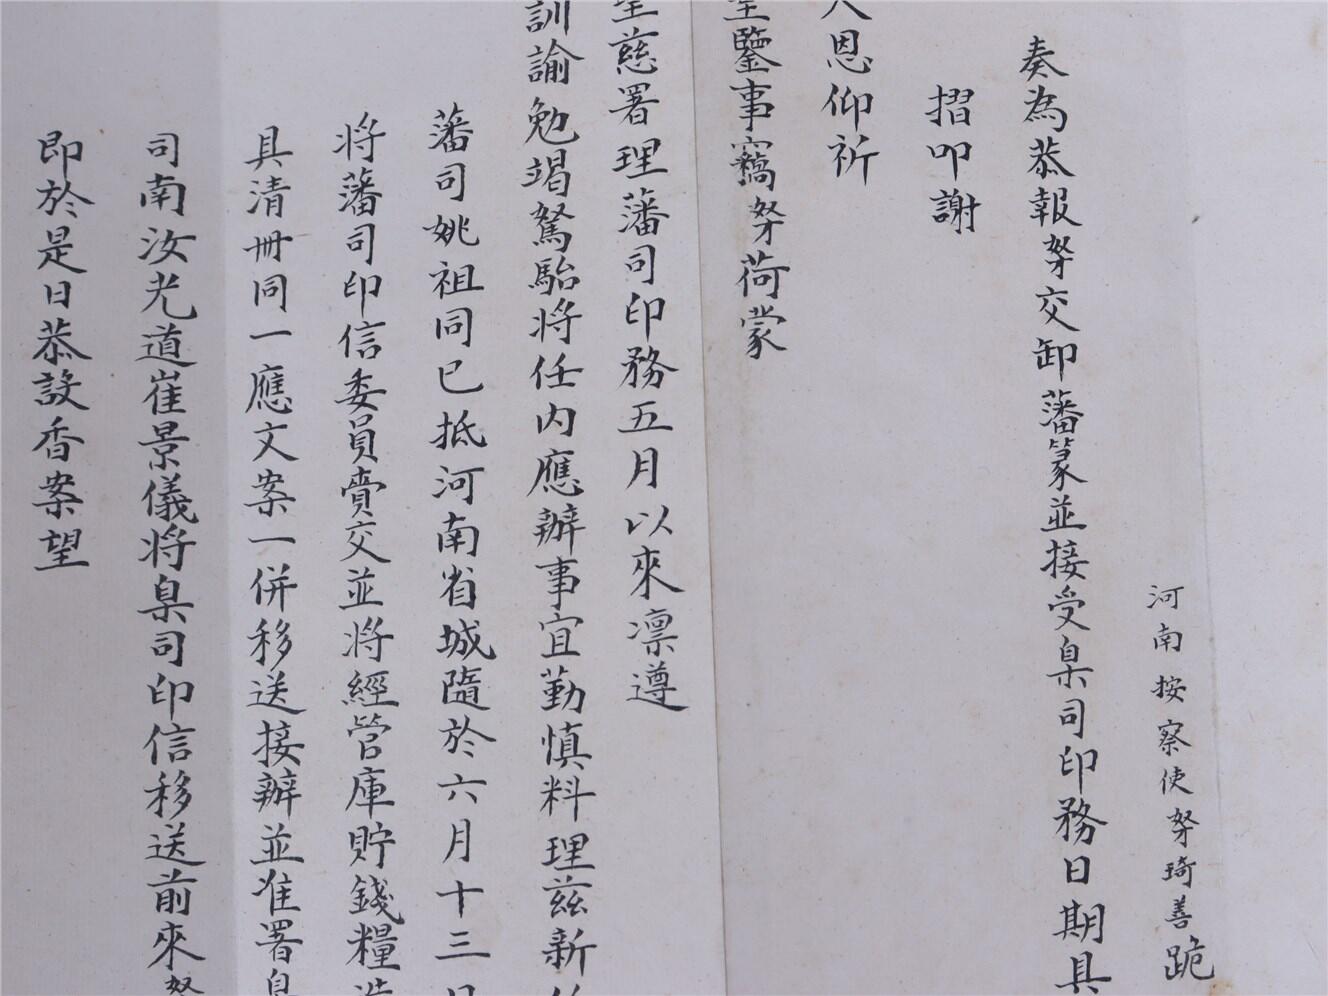 河南按察使奴才琦善跪
奏為恭報奴才交卸藩篆並接受臬司印務日期具
摺叩謝
天恩仰祈
聖鑒事竊奴才荷蒙
聖慈署理藩司印務五月以來凛遵
訓諭勉竭駑駘將任内應辦事宜勤慎料理茲新
藩司姚祖同已抵河南省城隨於六月十三日
將藩司印信委員賫交並將經管庫貯錢糧造
具清冊同一應文案一併移送接辦並准署臬
司南汝光道崔景儀將臬司印信移送前來奴才
即於是日恭設香案望